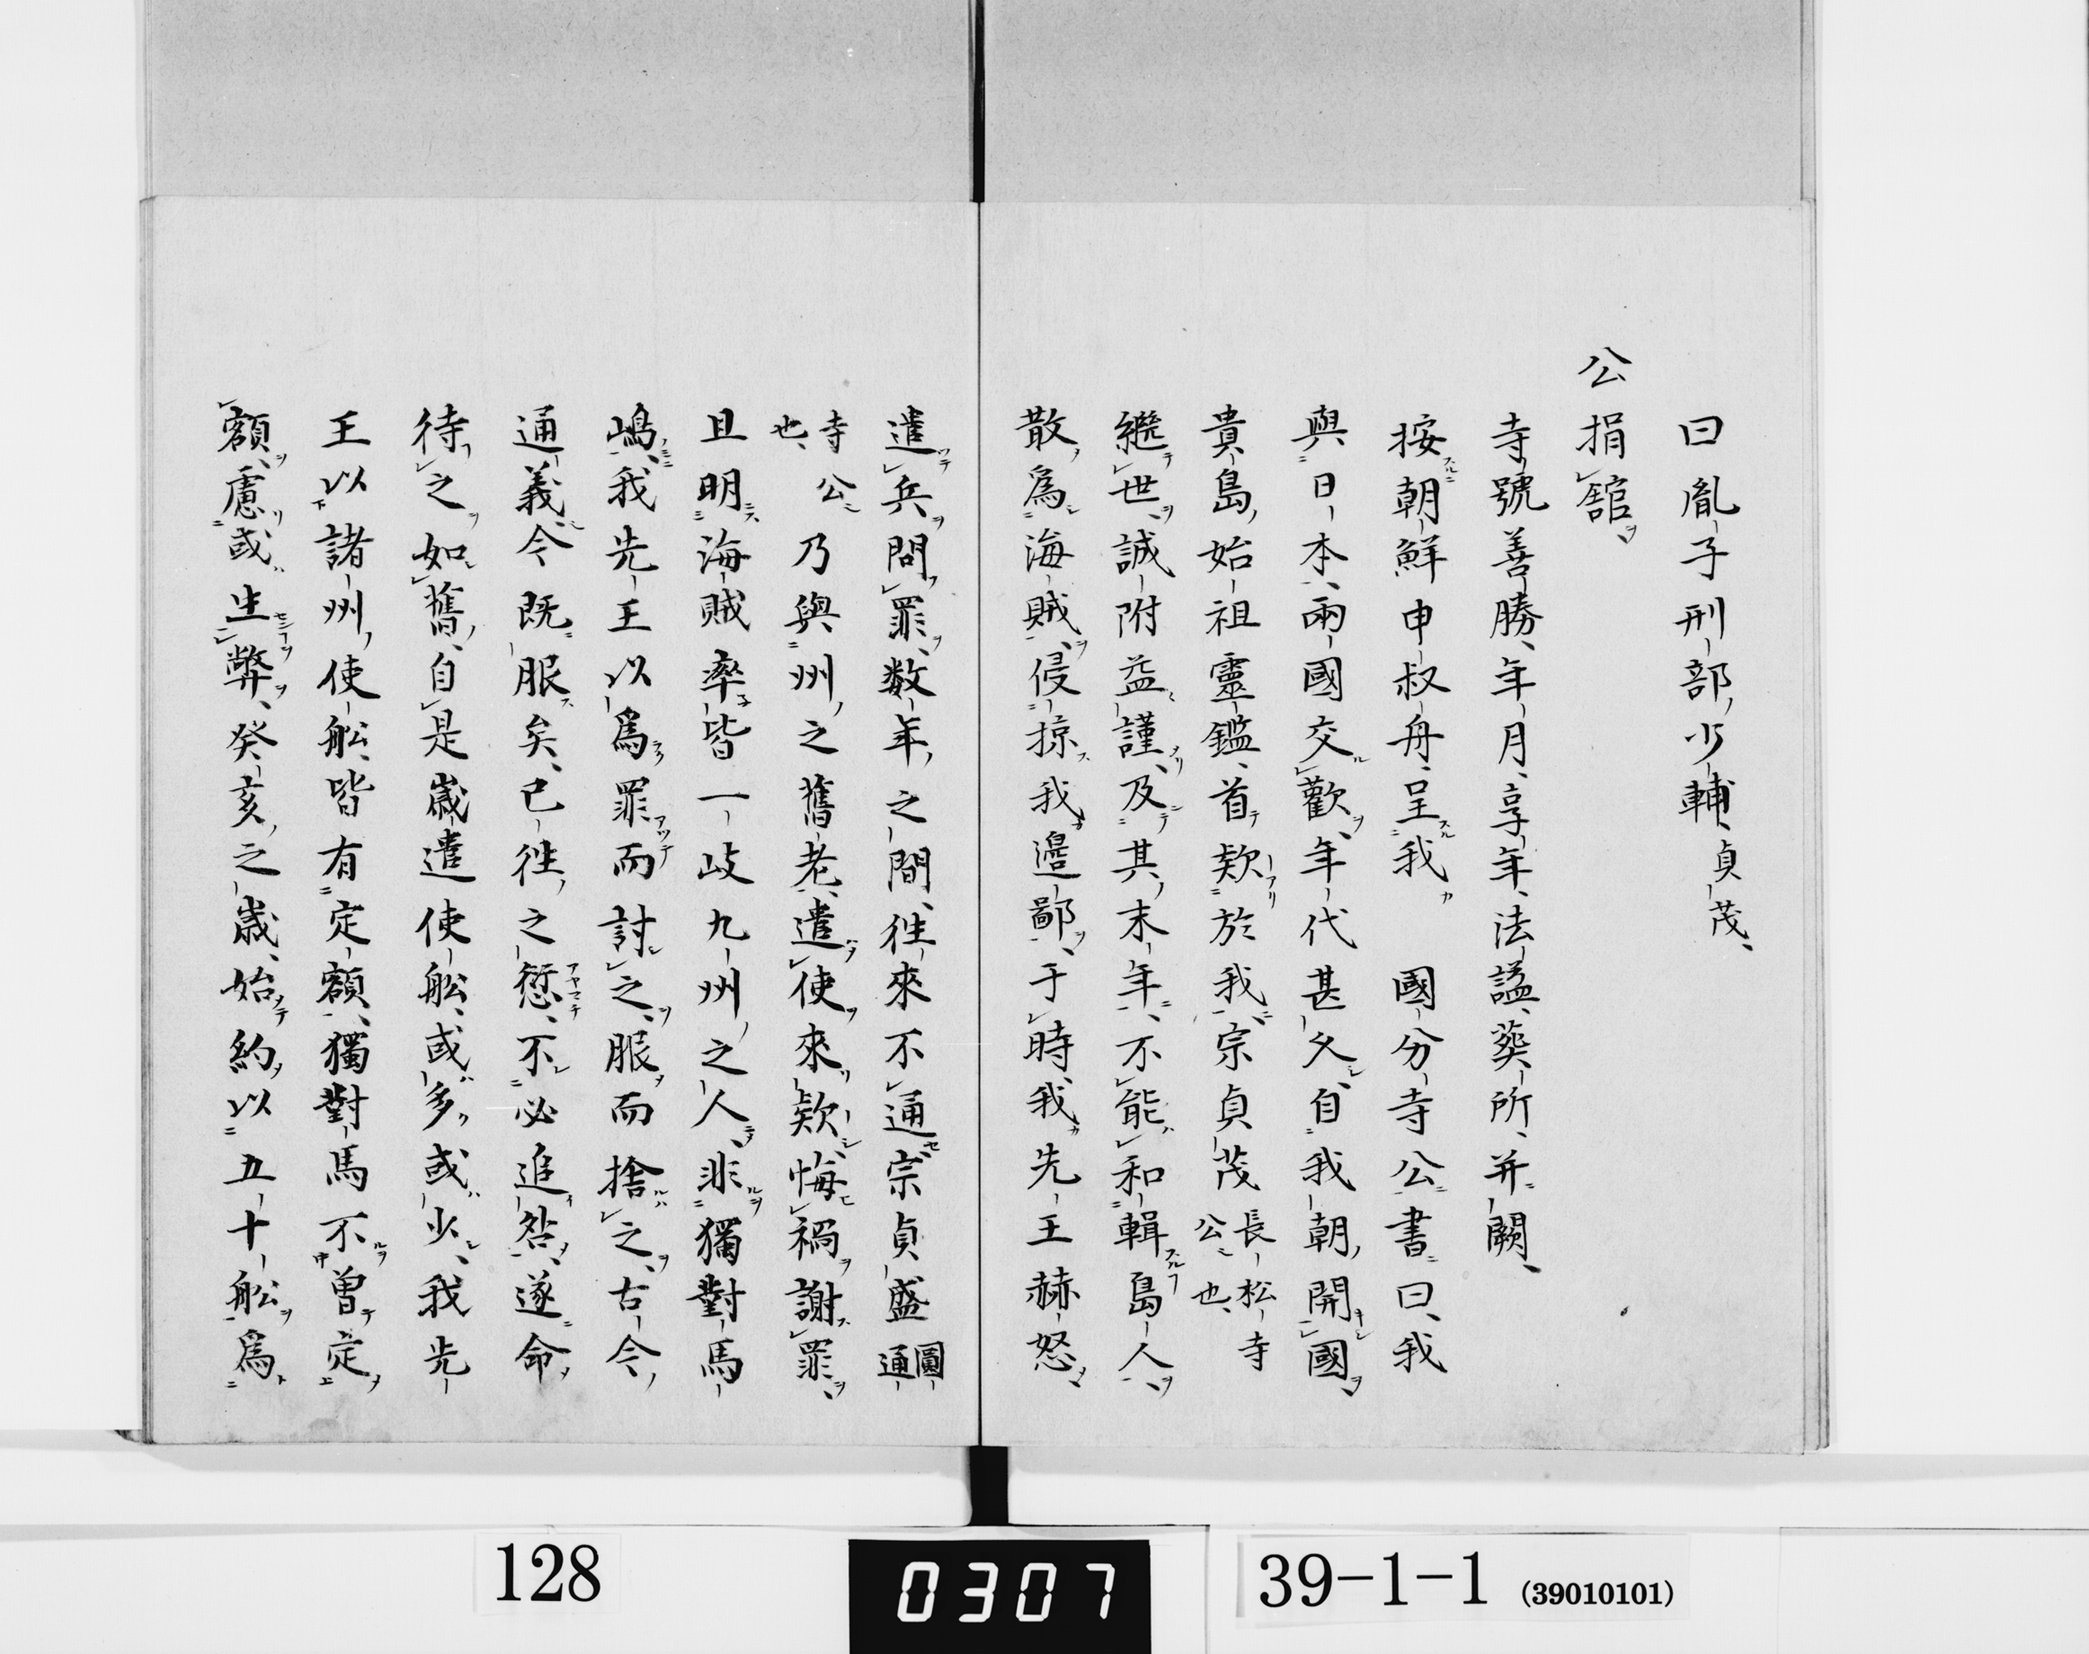 曰胤子刑部少輔貞茂
公捐舘
寺號善勝年月享年法謚葬所并闕
按朝鮮申叔舟呈我 國分寺公書曰我
與日本兩國交歡年代甚久自我朝開國
貴島始祖靈鑑首欵於我宗貞茂長松寺公也
繼世誠附益謹及其末年不能和輯島人
散爲海賊侵掠我邉鄙于時我先王赫怒
遣兵問罪数年之間徃來不通宗貞盛圓通
寺公也乃與州之舊老遣使來欵悔禍謝罪
且明海賊率皆一岐九州之人非獨對馬
嶋我先王以爲罪而討之服而捨之古今
通義今既服矣已徃之愆不必追咎遂命
待之如舊自是歳遣使舩或多或少我先
王以諸州使舩皆有定額獨對馬不曽定
額慮或生弊癸亥之歳始約以五十舩爲
128
0307
39-1-1 (39010101)